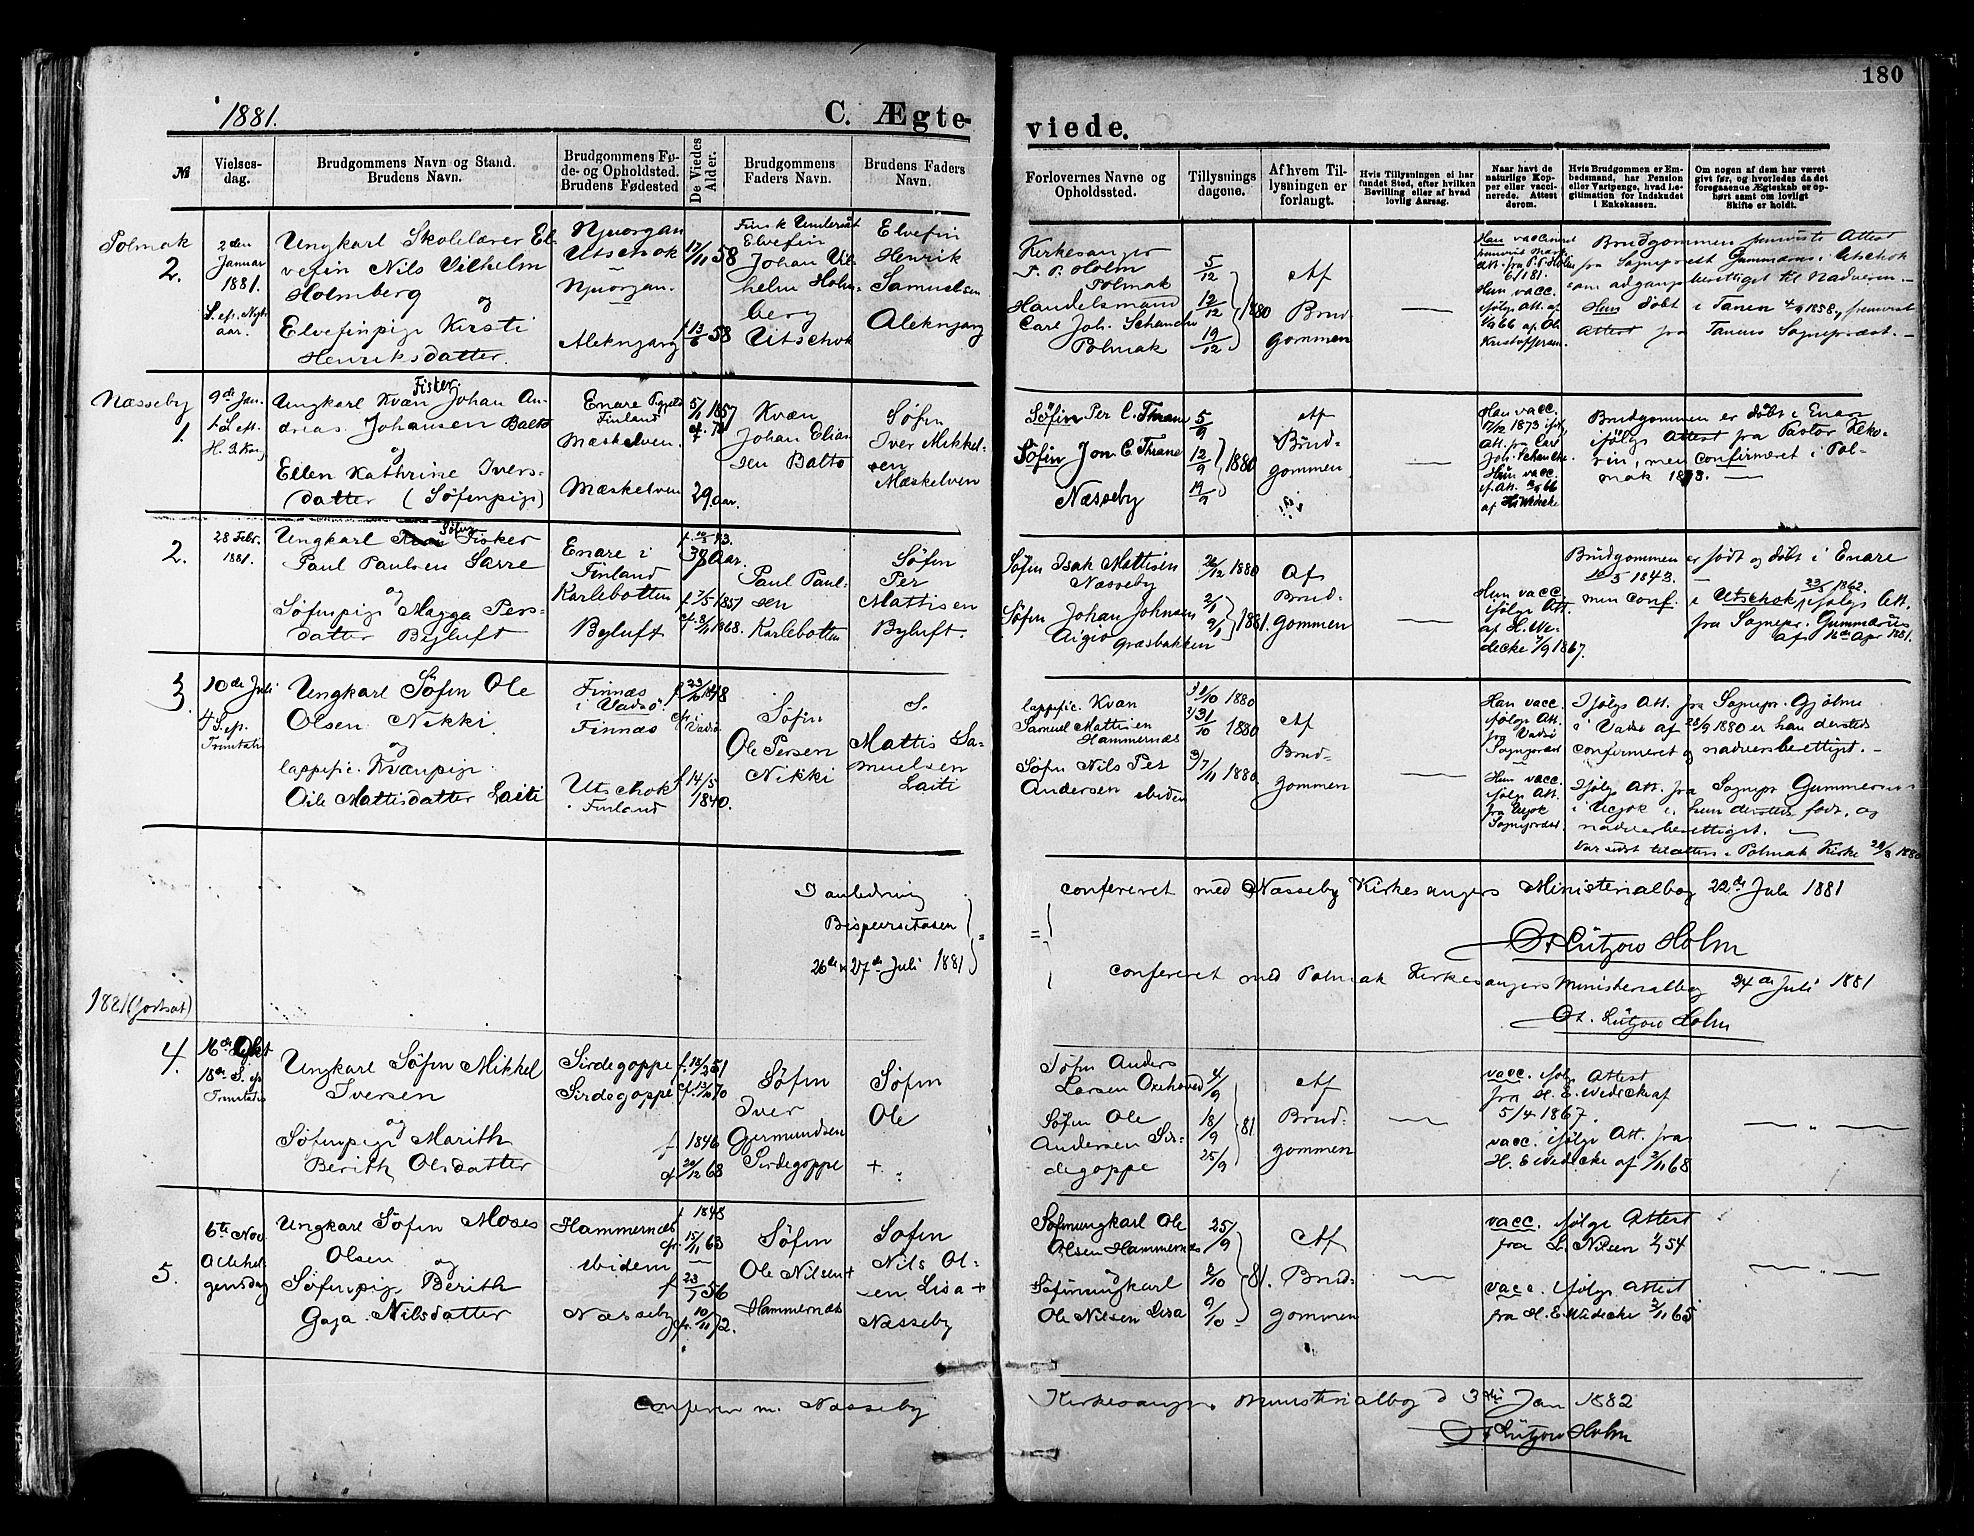 180
1881.
C. Ægte-
viede.
№
Vielses-
dag.
Brudgommens Navn og Stand.
Brudens Navn.
Brudgommens Fø-
de- og Opholdsted.
Brudens Fødested
De Viedes
Alder.
Brudgommens
Faders Navn.
Brudens Faders
Navn.
Forlovernes Navne og
Opholdssted.
Tillysnings
dagene.
Af hvem Til-
lysningen er
forlangt.
Hvis Tillysningen ei har
fundet Sted, efter hvilken
Bevilling eller af hvad
lovlig Aarsag.
Naar havt de
naturlige Kop-
per eller vacci-
nerede. Attest
derom.
Hvis Brudgommen er Em-
bedsmand, har Pension
eller Vartpenge, hvad Le-
gitimation for Indskudet
i Enkekassen.
Om nogen af dem har været
givt før, og hvorledes da det
foregaaende Ægteskab er op-
hørt samt om lovligt
Skifte er holdt.
Polmak
2.
2den
Januar
1881.
S. ef. Nyt-
aar.
Ungkarl Skolelærer El-
vefin Nils Vilhelm
Holmberg
og
Elvefinpige Kirsti
Henriksdatter.
Njuorgan
Utschok
Njuorgan.
Aleknjarg
17/11 58
f 13/6 58
Finsk Undersåt
Elvefin
Johan Vil-
helm Holm-
berg
Utschok
Elvefin
Henrik
Samuelsen
Aleknjarg
Kirkesanger
P. P. Holm
Polmak
Handelsmand
Carl Joh. Schanche
Polmak
5/12
12/12
19/12
1880
Af
Brud-
gommen
Han vaccineret
att. fra P. P. Holm
6/1 81.
Hun vacc.
ifølge Att. af
66 af Ole
Kristoffersen.
Brudgommen fremviste Attest
fra Sognepræst Gummerus i Utschok
som adgangsberettiget til Nadveren. —
Hun døbt i Tanen 4/9 1858, fremvist
Attest fra Tanens Sognepræst. —
Næsseby
1.
9de Jan.
1. S. eft.
H. 3. Kon.
Fisker
Ungkarl Kvæn Johan An-
dreas Johansen Balto
og
Ellen Kathrine Ivers-
datter (Søfinpige)
Enare
Finland
Mæskelven.
Mæskelven
5/1 1857
29 aar.
Kvæn
Johan Elia-
sen Balto
Søfin
Iver Mikkel-
sen
Mæskelven
Søfin Per C. Thrane
Søfin Jon C Thrane
Næsseby
5/9
12/9
19/9
1880
Af
Brud-
gommen
Han vacc.
17/12 1873 ifølg.
Att. fra Carl
Joh. Schanche.
Hun vacc.
af H. Wedecke
Brudgommen er døbt i Enare
ifølge Attest fra Pastor Heko-
rin, men confirmeret i Pol-
mak 1873. —
2.
28 Febr.
1881.
Ungkarl Søfin Fisker
Paul Paulsen Sarre
og
Søfinpige Magga Pers-
datter Byluft
Enare i
Finland
Karlebotten
Byluft
38 Aar.
f. 7/5 1851
cf. 8/11 1868.
Paul Paul-
sen
Karlebotten
Søfin
Per
Mattisen
Byluft.
Søfin Isak Mattisen
Næsseby
Søfin Johan Johnsen
Aigio Græsbakken
26/12 1880
2/1
9/1
1881.
Af
Brud-
gommen
Hun vacc.
ifølge Att.
af H. We-
decke 7/9 1867.
Brudgommen er født og døbt i Enare
10/5 1843. —
men conf. i Utschok 23/3 1862. ifølge Att.
fra Sognepr. Gummerus
af 16de Apr 1881.
3
10de Juli
4 S. ef.
Trinitatis
Ungkarl Søfin Ole
Olsen Nikki
og
lappefic. Kvænpige
Oile Mattisdatter Laiti
Finnæs
i Vadsø
Finnæs
Utschok
i Finland
f 23/10 1848
cf. i
Vadsø
f 14/5
1840.
Søfin
Ole Persen
Nikki
S.
Mattis Sa-
muelsen
Laiti
lappefic. Kvæn
Samuel Mattisen
Hammernæs
Søfin Nils Per
Andersen ibidem
1880
31/10 1880
3/7/11 1880
Af
Brud-
gommen
Han vacc.
ifølge Att.
fra Vadsø
Sognepræst
Hun vacc.
ifølge Att.
fra Utsjok
Sognepræst.
Ifølge Att. fra Sognepr. Gjølme
i Vadsø af 28/9 1880 er han dersteds
confirmeret og nadverberettiget. —
Ifølge Att. fra Sognepr Gummerus
i Utsjok er hun dersteds født, og
nadverberettiget. —
Var sidst til alters i Polmak Kirke 29/8 1880
I anledning
Bispevisitasen
26de & 27de Juli 1881
confereret med Næsseby Kirkesangers Ministerialbog 22de Juli 1881
O. Lützow Holm
confereret med Polmak Kirkesangers Ministerialbog 24de Juli 1881
O. Lützow Holm
1881 (fortsat)
4.
16de Okt
18de S. ef
Trinitatis
Ungkarl Søfin Mikkel
Iversen
og
Søfinpige Marith
Berith Olsdatter
Sirdegoppe
Sirdegoppe
f. 18/2 51
cf. 13/10 70
f 1846
cf 20/12 68
Søfin
Iver
Germundsen
Sirdegoppe
Søfin
Ole
+
Søfin Anders
Larsen Oxehoved
Søfin Ole
Andersen Sir-
degoppe
4/9
18/9
25/9
81
Af
Brud-
gommen
vacc. ifølge Attest
fra H. E. Wedecke af
5/4 1867.
vacc. ifølge Att. fra
H. E Wedecke af 2/11 68
5.
6te Nov.
Allehel-
gensdag
Ungkarl Søfin Moses
Olsen
og
Søfinpige Berith
Gaja Nilsdatter
Hammernæs
ibidem
Næsseby
f 1848
cf. 15/11 63
f 23/7 56
cf. 10/11 72.
Søfin
Ole Nilsen +
Hammernæs
Søfin
Nils Ol-
sen Lisa +
Næsseby
Søfinungkarl Ole
Olsen Hammernæs
og
Søfinungkarl
Ole Nilsen Lisa
25/9
2/10
9/10
81.
Af
Brud-
gommen
vacc. ifølge Attest
fra L. Nilsen 4/7 54
vacc. ifølge Attest
fra H. E. Wedecke 2/11 65
conferer m. Næsseby Kirkesanger Ministerialbog d 3die Jan 1882
O Lützow Holm